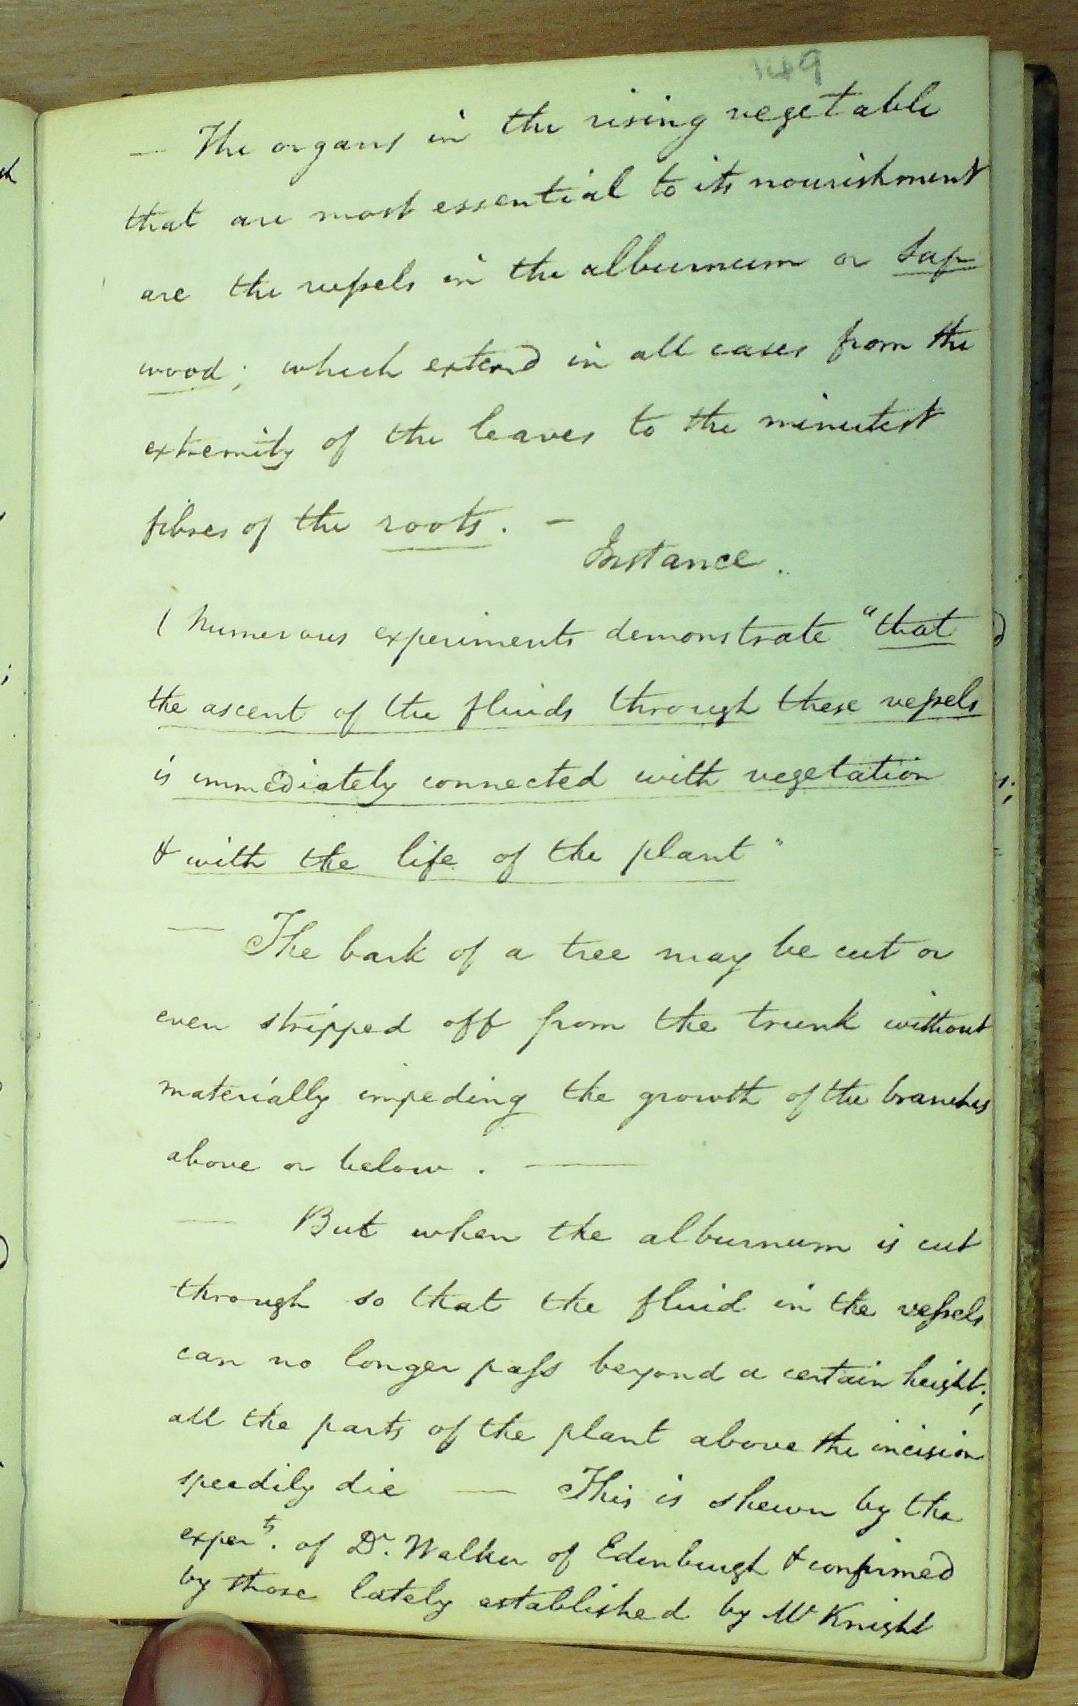 149
— The organs in the rising vegetable
that are most essential to its nourishment
are the vessels in the alburnum or sap
wood; which extend in all cases from the
extremity of the leaves to the minutest
fibres of the roots. —
Instance.
( Numerous experiments demonstrate "that
the ascent of the fluids through these vessels
is immediately connected with vegetation
& with the life of the plant"
— The bark of a tree may be cut or
even stripped off from the trunk without
materially impeding the growth of the branches
above or below. —
— But when the alburnum is cut
through so that the fluid in the vessels
can no longer pass beyond a certain height;
all the parts of the plant above the incision
speedily die — This is shewn by the
exper.ts of Dr. Walker of Edenburgh & confirmed
by those lately established by Mr Knight